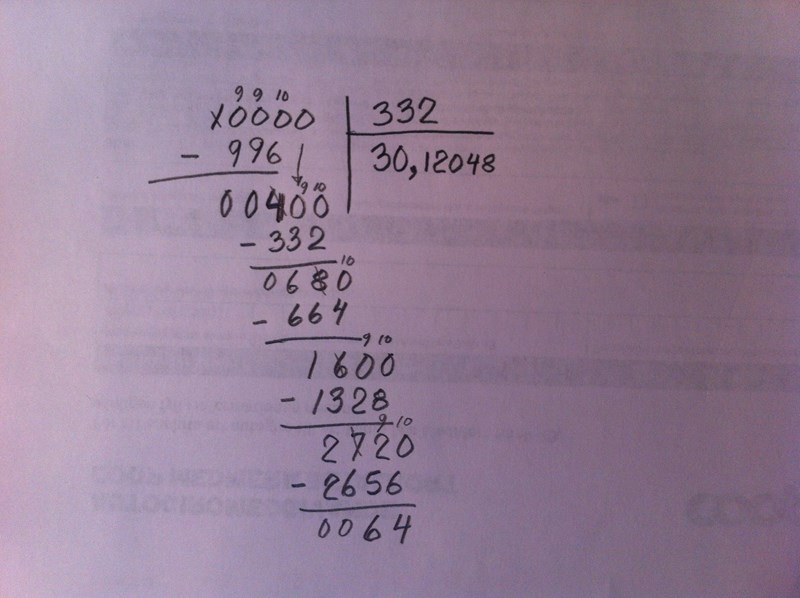 9 9 10
10000 332
- 996 30,12048
9 10
00400
- 332
10
0680
- 664
9 10
1600
- 1328
9 10
2720
- 2656
0064